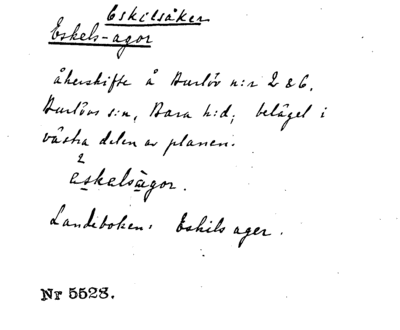 Eskilsåker
Eskels-agor
åkerskifte å Burlöv n:r 2 & 6,
Burlövs s:n, Bara h:d, beläget i
västra delen av planen.
2
eskelsàgor.
Landeboken: Eskils ager.
Nr 5528.